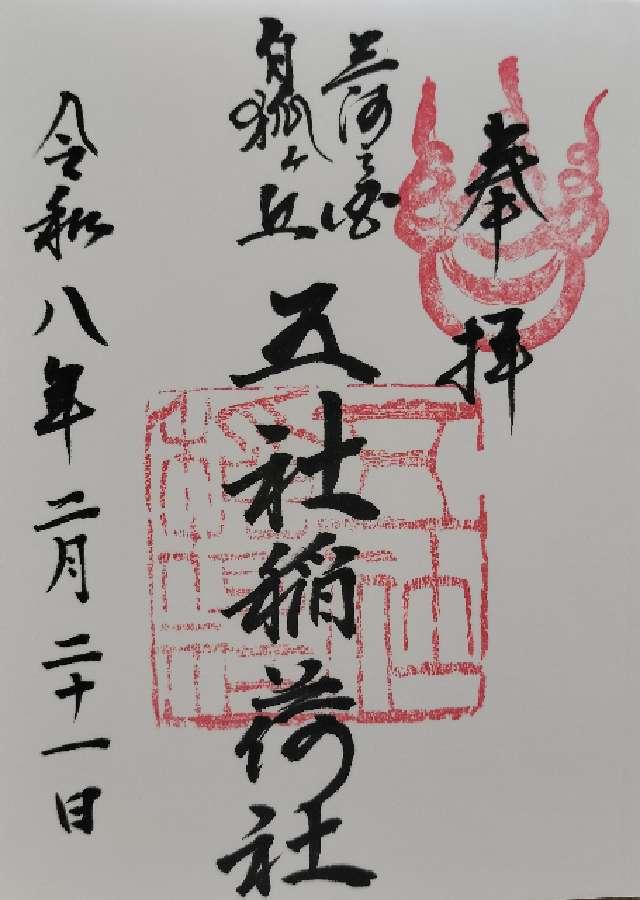 奉拝
三河之國
白狐ヶ丘
五社稲荷社
令和八年二月二十一日